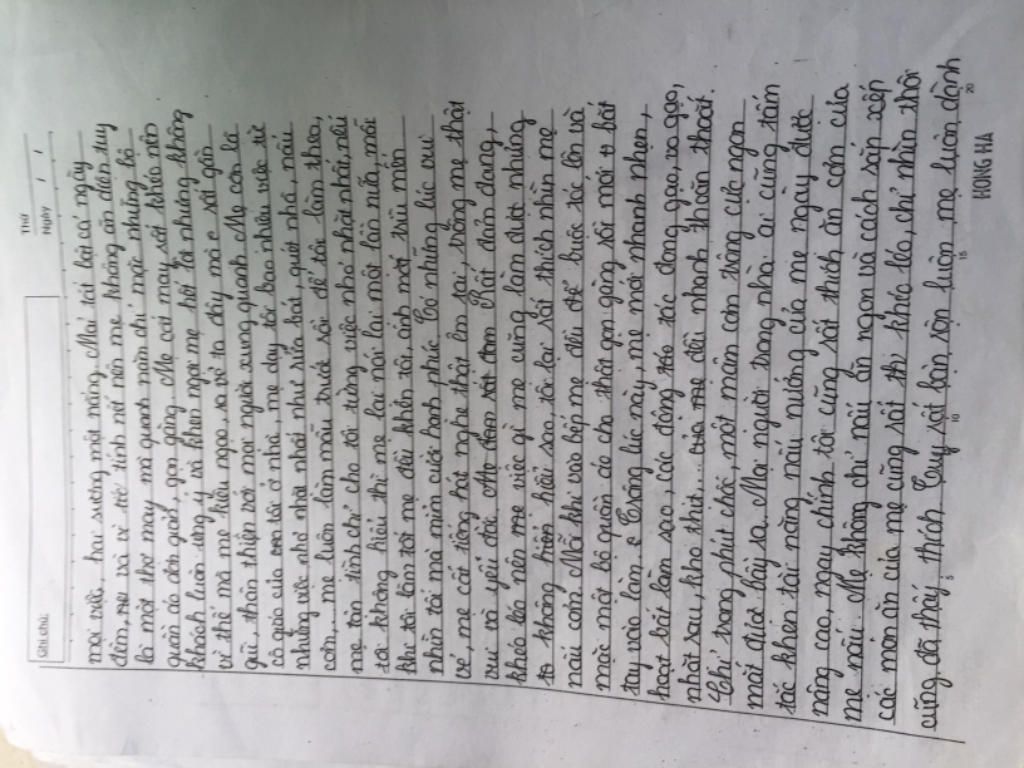 Ghi chú:
Thứ
Ngày / /
mọi việc, hai sương một nắng. Mái tóc bới cả ngày
đêm, mẹ và vì trẻ tính nết nên mẹ không ăn diện tuy
là một thợ may mà quanh năm chỉ mặc những bộ
quần áo đơn giản, gọn gàng. Mẹ cắt may rất khéo nên
khách luôn ưng ý và khen ngợi mẹ hết lời nhưng không
vì thế mà mẹ kiêu ngạo, ra vẻ ta đây mà rất gần
gũi, thân thiện với mọi người xung quanh. Mẹ còn là
cô giáo của tôi ở nhà, mẹ dạy tôi bao nhiêu việc từ
những việc nhỏ nhặt nhất như rửa bát, quét nhà, nấu
cơm, mẹ luôn làm mẫu trước rồi để tôi làm theo,
mẹ tận tình chỉ cho tôi từng việc nhỏ nhặt nhất, nếu
tôi không hiểu thì mẹ lại nói lại một lần nữa, mỗi
khi tôi làm tốt mẹ đều khen tôi, ánh mắt trìu mến
nhìn tôi mà mỉm cười hạnh phúc. Có những lúc vui
vẻ, mẹ cất tiếng hát nghe thật êm ái, trông mẹ thật
vui và yêu đời. Rất đảm đang,
khéo léo nên việc gì mẹ cũng làm được nhưng
không hiểu sao, tôi lại rất thích nhìn mẹ
nấu cơm. Mỗi khi vào bếp mẹ đều để buộc tóc lên và
mặc một bộ quần áo cho thật gọn gàng rồi mới bắt
tay vào làm. Trông lúc này, mẹ mới nhanh nhẹn,
hoạt bát làm sao, các động tác đong gạo, vo gạo,
nhặt rau, kho thịt, của mẹ đều nhanh thoăn thoắt.
Chỉ trong phút chốc, một mâm cơm trông cực ngon
mắt được bày ra. Mọi người trong nhà ai cũng tấm
tắc khen tài năng nấu nướng của mẹ ngày được
nâng cao, ngay chính tôi cũng rất thích ăn cơm của
mẹ nấu. Mẹ không chỉ nấu ăn ngon và cách sắp xếp
các món ăn của mẹ cũng rất thì khéo léo, chỉ nhìn thôi
cũng đã thấy thích. Tuy rất bận rộn luôn, mẹ luôn dành
5 10 15 20
HONG HA